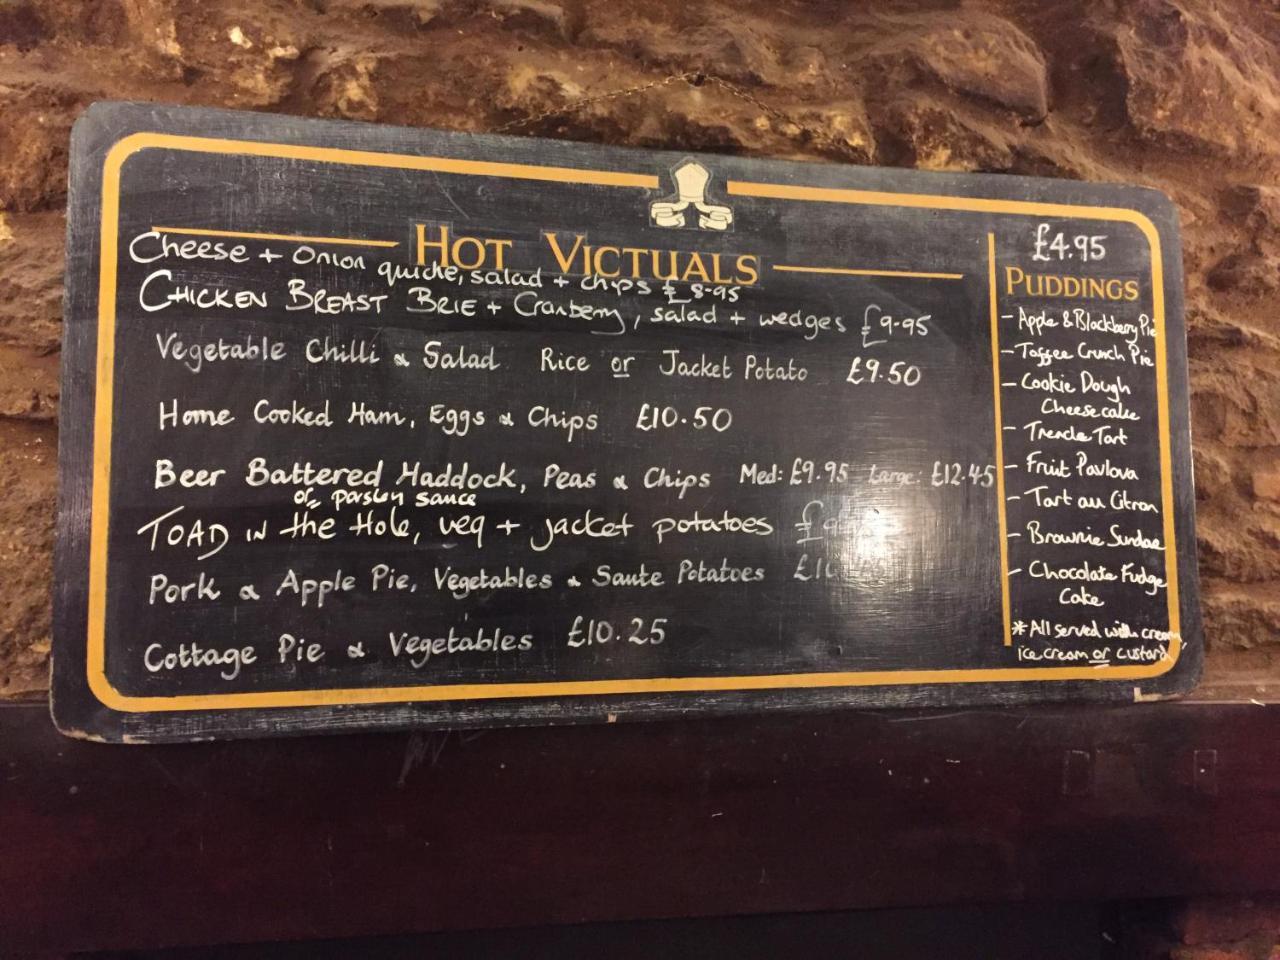 HOT VICTUALS
Cheese + Onion quiche, salad + chips £8-95
CHICKEN BREAST BRIE + Cranberry, salad + wedges £9-95
Vegetable Chilli & Salad Rice or Jacket Potato £9.50
Home Cooked Ham, Eggs & Chips £10.50
Beer Battered Haddock, Peas & Chips Med: £9.95 Large: £12.45
or parsley sauce
TOAD IN the Hole, veg + jacket potatoes
Pork & Apple Pie, Vegetables & Saute Potatoes
Cottage Pie & Vegetables £10.25
£4.95
PUDDINGS
- Apple & Blackberry Pie
- Toffee Crunch Pie
- Cookie Dough
Cheesecake
- Treacle Tart
- Fruit Pavlova
- Tart au Citron
- Brownie Sundae
- Chocolate Fudge
Cake
* All served with cream,
ice cream or custard